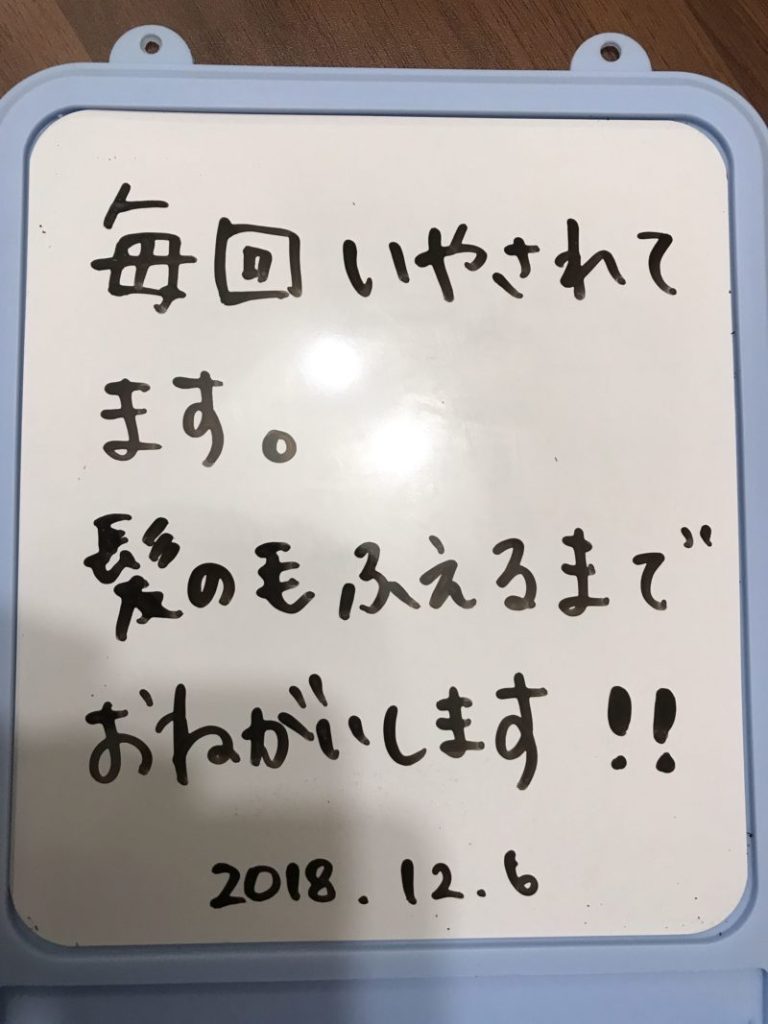 毎回いやされて
ます。
髪の毛ふえるまで
おねがいします!!
2018.12.6